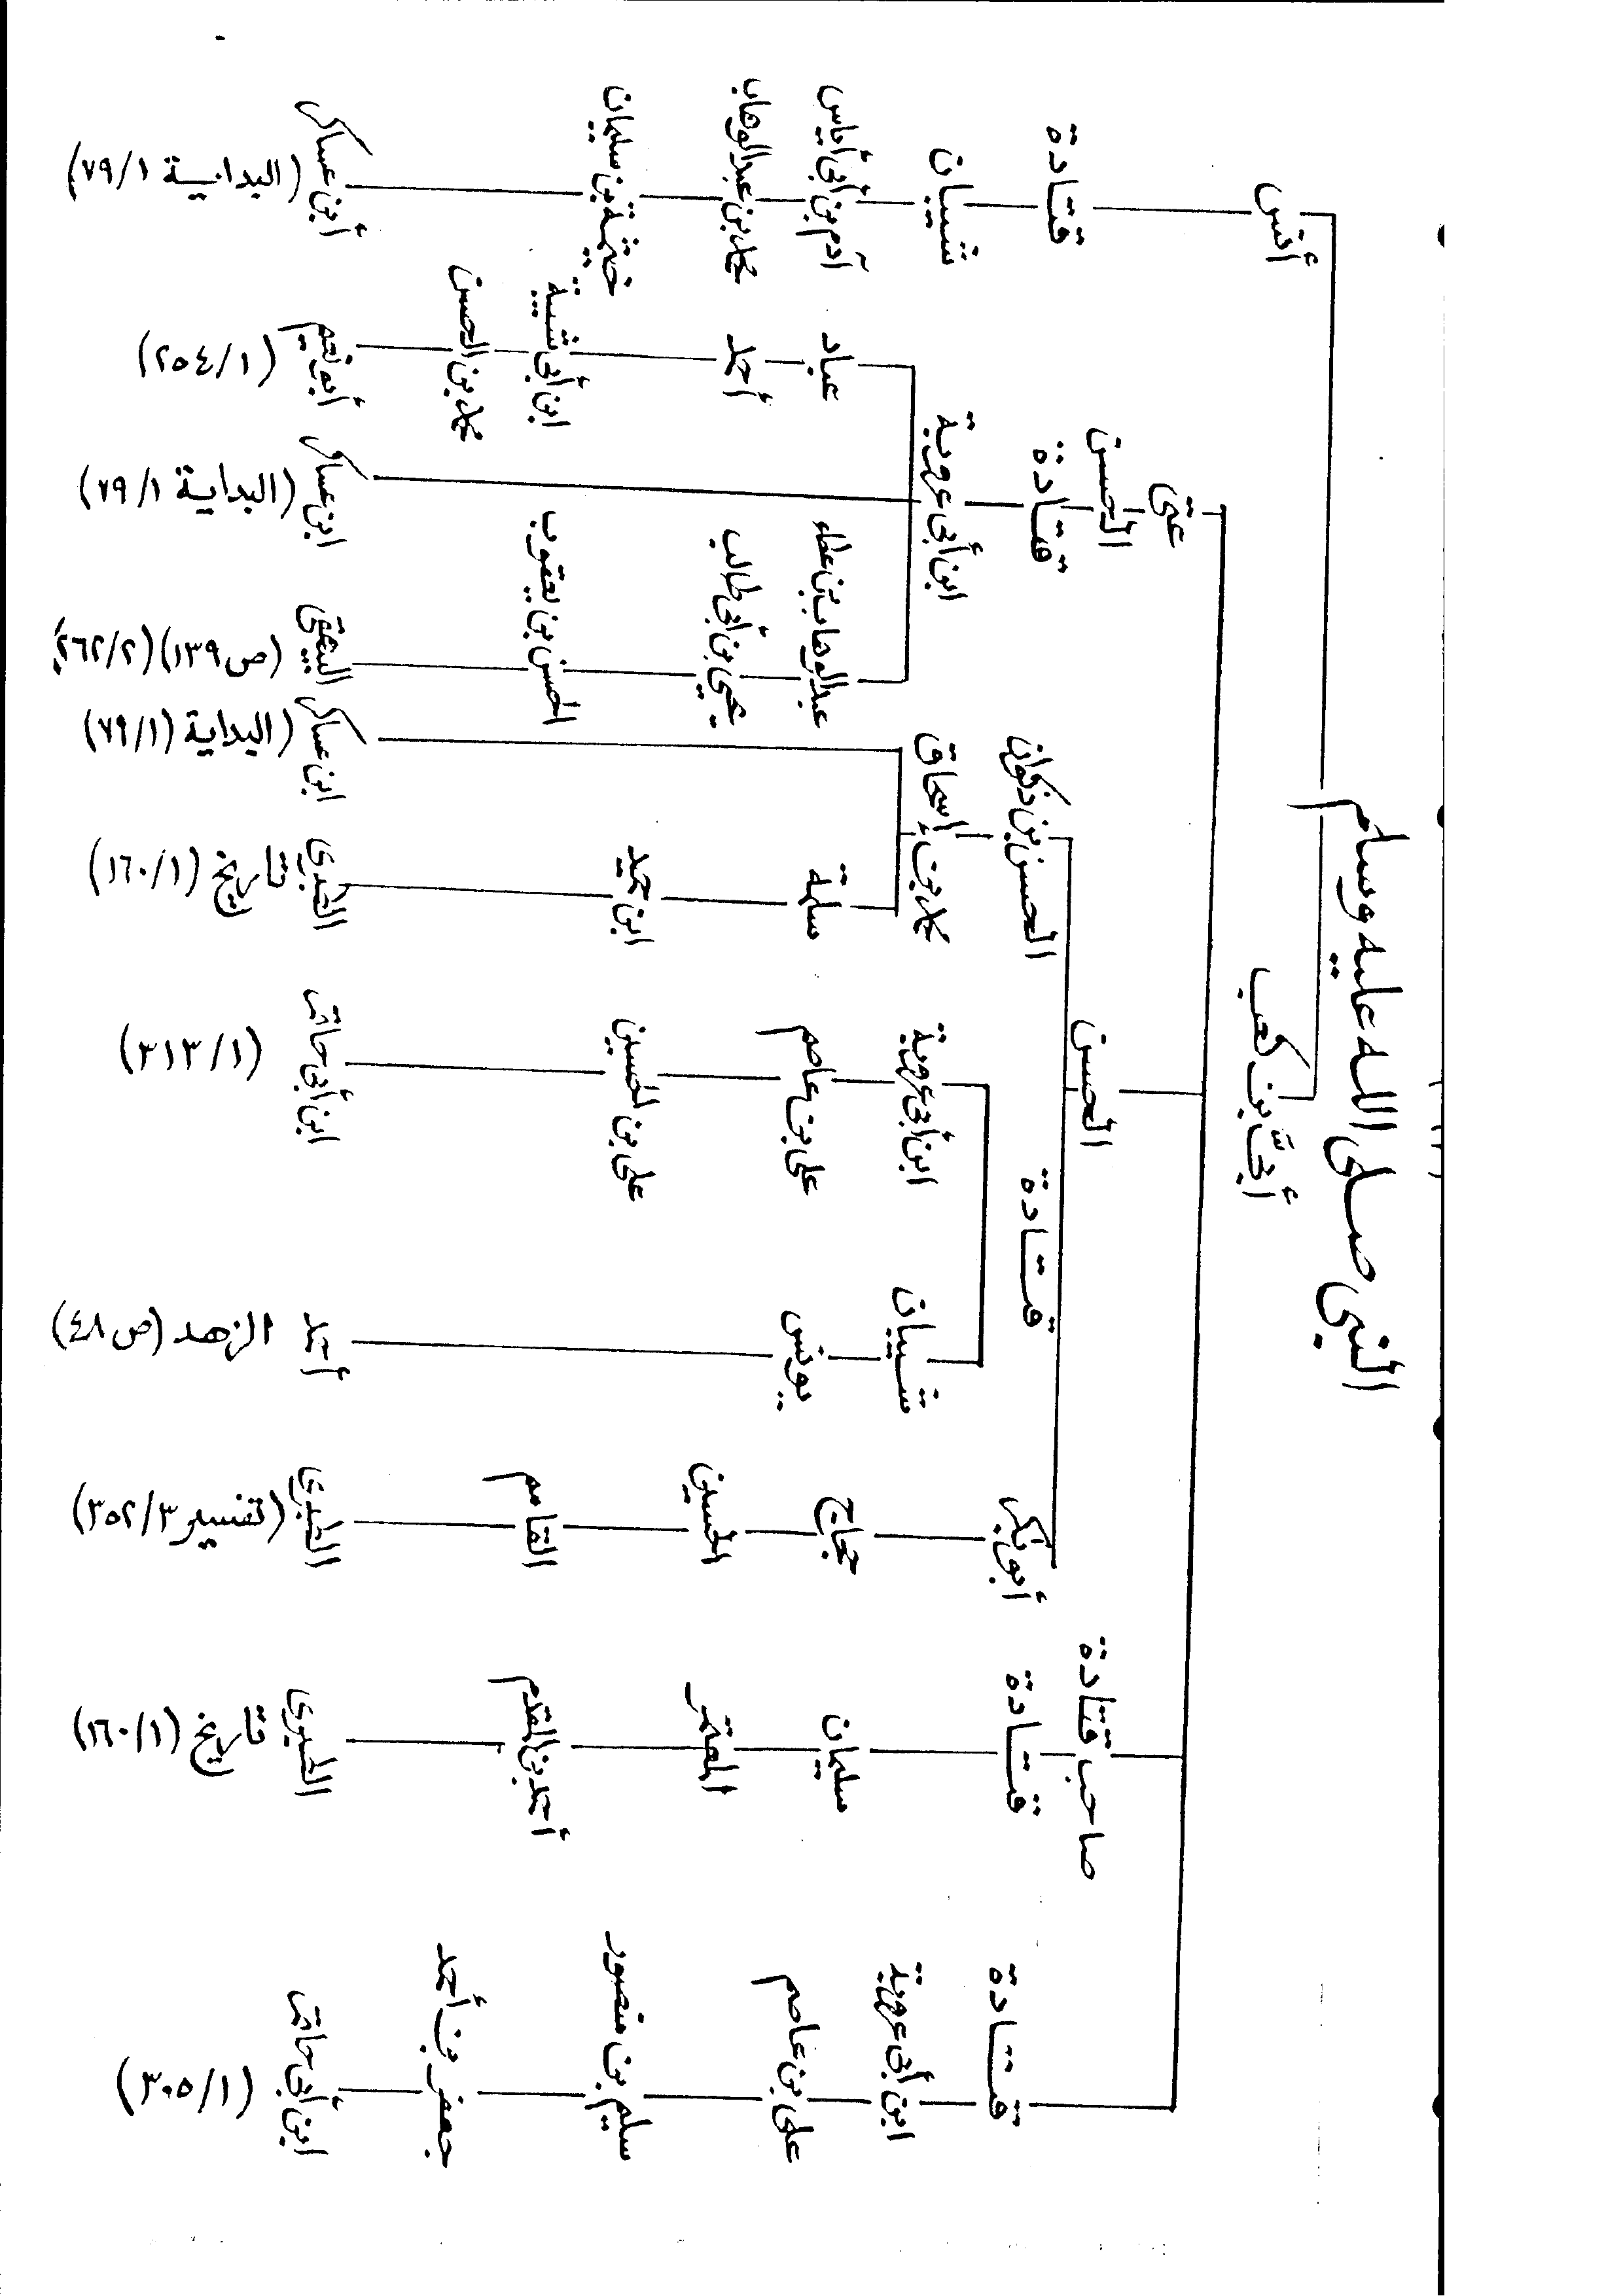 النبي صلى الله عليه وسلم
أنس
قتادة
شيبان
آدم بن أبي أياس
محمد بن عبد الوهاب
خيثمة بن سليمان
أبن عساكر (البداية ٧٩/١)
أبيّ بن كعب
عتي
الحسن
قتادة
ابن أبي عروبة
عباد
أحمد
ابن أبي شيبة
محمد بن الحسن
أبو نعيم (٢٥٤/١)
ابن عساكر (البداية ٧٩/١)
عبد الوهاب بن عطاء
يحيى بن أبي طالب
الحسن بن يعقوب
البيهقي (ص ١٣٩) (٢٦٢/٢)
الحسن
الحسن بن ذكوان
محمد بن إسحاق
ابن عساكر (البداية ٧٩/١)
سلمة
ابن حميد
الطبري تاريخ (١٦٠/١)
قتادة
ابن أبي عروبة
علي بن عاصم
علي بن الحسين
ابن أبي حاتم (٣١٣/١)
شيبان
يونس
أحمد الزهد (ص ٤٨)
أبو بكر
حجاج
الحسين
القاسم
الطبري (تفسير ٣٥٢/٣)
صاحب قتادة
قتادة
سليمان
المعتمر
أحمد بن المقدم
الطبري تاريخ (١٦٠/١)
قتادة
ابن أبي عروبة
علي بن عاصم
سليم بن منصور
جعفر بن أحمد
ابن أبي حاتم (٣٠٥/١)